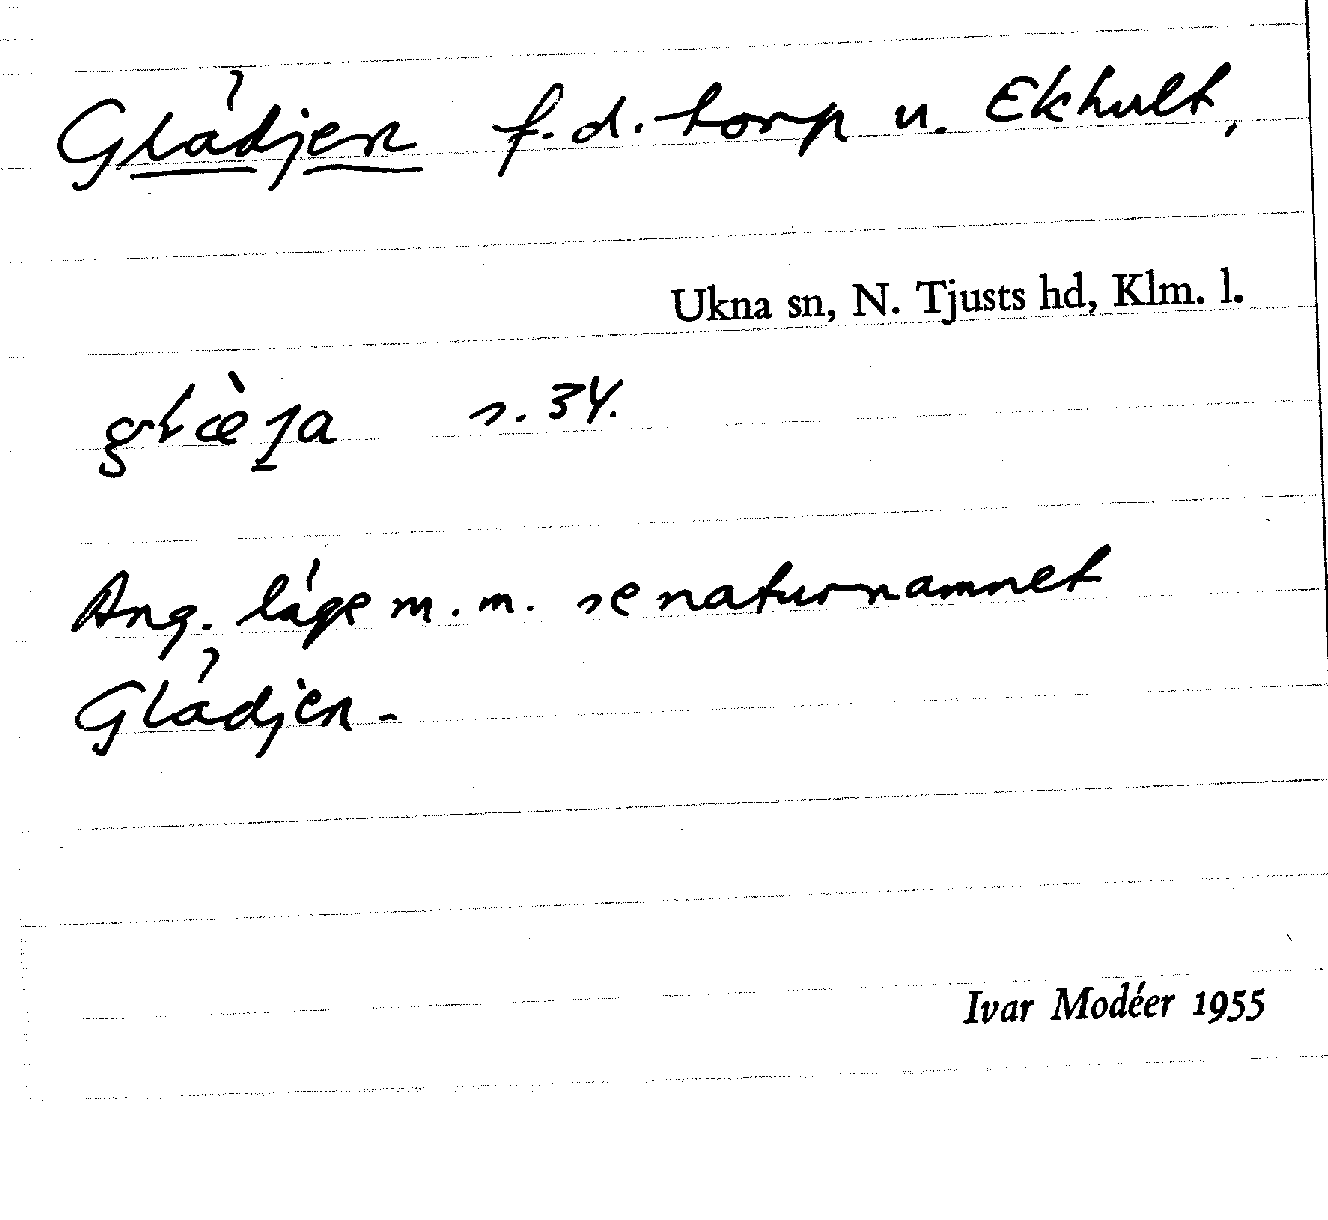 Glädjen f.d. torp u. Ekhult,
Ukna sn, N. Tjusts hd, Klm. l.
glæ̀ja s. 34.
Ang. läge m.m. se naturnamnet
Glädjen.
Ivar Modéer 1955